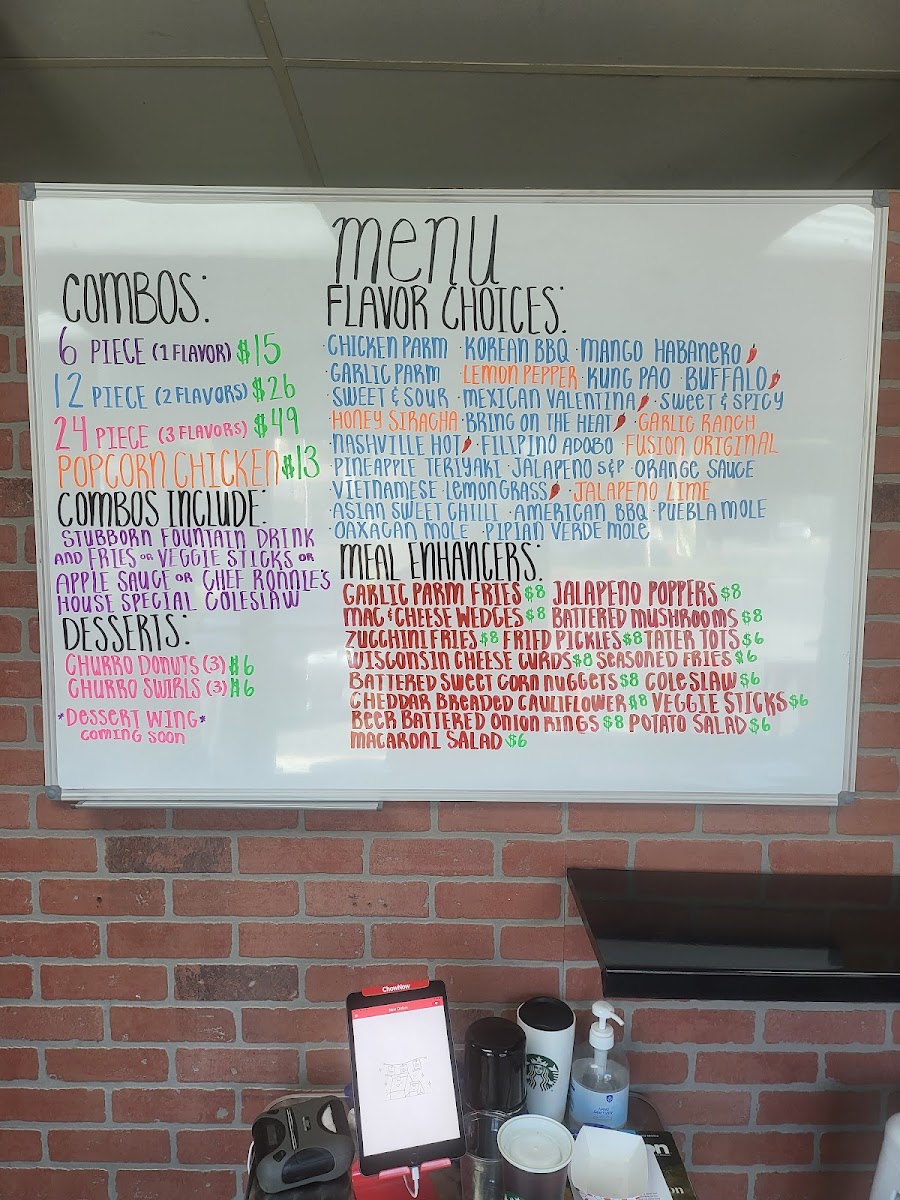 menu
COMBOS:
6 PIECE (1 FLAVOR) $15
12 PIECE (2 FLAVORS) $26
24 PIECE (3 FLAVORS) $49
POPCORN CHICKEN $13
COMBOS INCLUDE:
STUBBORN FOUNTAIN DRINK
AND FRIES OR VEGGIE STICKS OR
APPLE SAUCE OR CHEF RONNIE'S
HOUSE SPECIAL COLESLAW
DESSERTS:
CHURRO DONUTS (3) $6
CHURRO SWIRLS (3) $6
*DESSERT WING*
COMING SOON
FLAVOR CHOICES:
·CHICKEN PARM ·KOREAN BBQ ·MANGO HABANERO
·GARLIC PARM ·LEMON PEPPER ·KUNG PAO ·BUFFALO
·SWEET & SOUR ·MEXICAN VALENTINA ·SWEET & SPICY
·HONEY SIRACHA ·BRING ON THE HEAT ·GARLIC RANCH
·NASHVILLE HOT ·FILIPINO ADOBO ·FUSION ORIGINAL
·PINEAPPLE TERIYAKI ·JALAPENO S&P ·ORANGE SAUCE
·VIETNAMESE LEMONGRASS ·JALAPENO LIME
·ASIAN SWEET CHILI ·AMERICAN BBQ ·PUEBLA MOLE
·OAXACAN MOLE ·PIPIAN VERDE MOLE
MEAL ENHANCERS:
GARLIC PARM FRIES $8 JALAPENO POPPERS $8
MAC & CHEESE WEDGES $8 BATTERED MUSHROOMS $8
ZUCCHINI FRIES $8 FRIED PICKLES $8 TATER TOTS $6
WISCONSIN CHEESE CURDS $8 SEASONED FRIES $6
BATTERED SWEET CORN NUGGETS $8 COLESLAW $6
CHEDDAR BREADED CAULIFLOWER $8 VEGGIE STICKS $6
BEER BATTERED ONION RINGS $8 POTATO SALAD $6
MACARONI SALAD $6
ChowNow